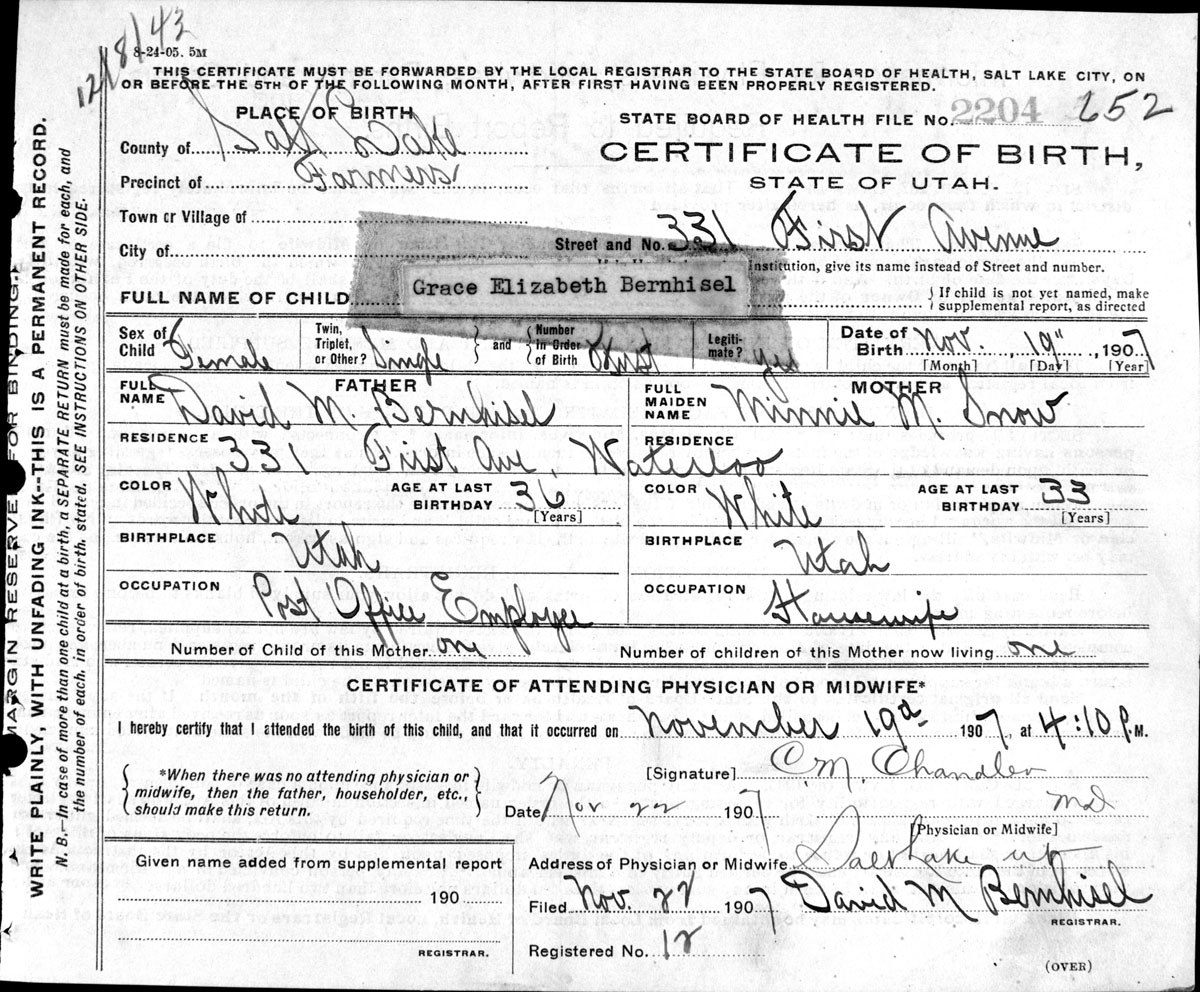 12/8/43
8-24-05. 5M
THIS CERTIFICATE MUST BE FORWARDED BY THE LOCAL REGISTRAR TO THE STATE BOARD OF HEALTH, SALT LAKE CITY, ON
OR BEFORE THE 5TH OF THE FOLLOWING MONTH, AFTER FIRST HAVING BEEN PROPERLY REGISTERED.
PLACE OF BIRTH
STATE BOARD OF HEALTH FILE No. 2204 252
County of Salt Lake
CERTIFICATE OF BIRTH,
Precinct of Farmers
STATE OF UTAH.
Town or Village of
Street and No. 331 First Avenue
City of
institution, give its name instead of Street and number.
FULL NAME OF CHILD Grace Elizabeth Bernhisel { If child is not yet named, make supplemental report, as directed
Sex of Child Female Twin, Triplet, or Other? Single { and { Number in Order of Birth first Legiti-mate? yes Date of Birth Nov. 19", 1907
[Month] [Day] [Year]
FATHER MOTHER
FULL NAME David M. Bernhisel FULL MAIDEN NAME Minnie M. Snow
RESIDENCE 331 First Ave Waterloo RESIDENCE
COLOR White AGE AT LAST BIRTHDAY 36 [Years] COLOR White AGE AT LAST BIRTHDAY 33 [Years]
BIRTHPLACE Utah BIRTHPLACE Utah
OCCUPATION Post Office Employee OCCUPATION Housewife
Number of Child of this Mother one Number of children of this Mother now living one
CERTIFICATE OF ATTENDING PHYSICIAN OR MIDWIFE*
I hereby certify that I attended the birth of this child, and that it occurred on November 19th 1907, at 4:10 P.M.
*When there was no attending physician or midwife, then the father, householder, etc., should make this return.
[Signature] C M. Chandler
Date Nov 22 1907 MD
[Physician or Midwife]
Given name added from supplemental report
190
REGISTRAR.
Address of Physician or Midwife Salt Lake
Filed Nov. 27 190 David M Bernhisel
REGISTRAR.
Registered No. 12
(OVER)
MARGIN RESERVED FOR BINDING.
WRITE PLAINLY, WITH UNFADING INK--THIS IS A PERMANENT RECORD.
N. B.--In case of more than one child at a birth, a SEPARATE RETURN must be made for each, and
the number of each, in order of birth, stated. SEE INSTRUCTIONS ON OTHER SIDE.